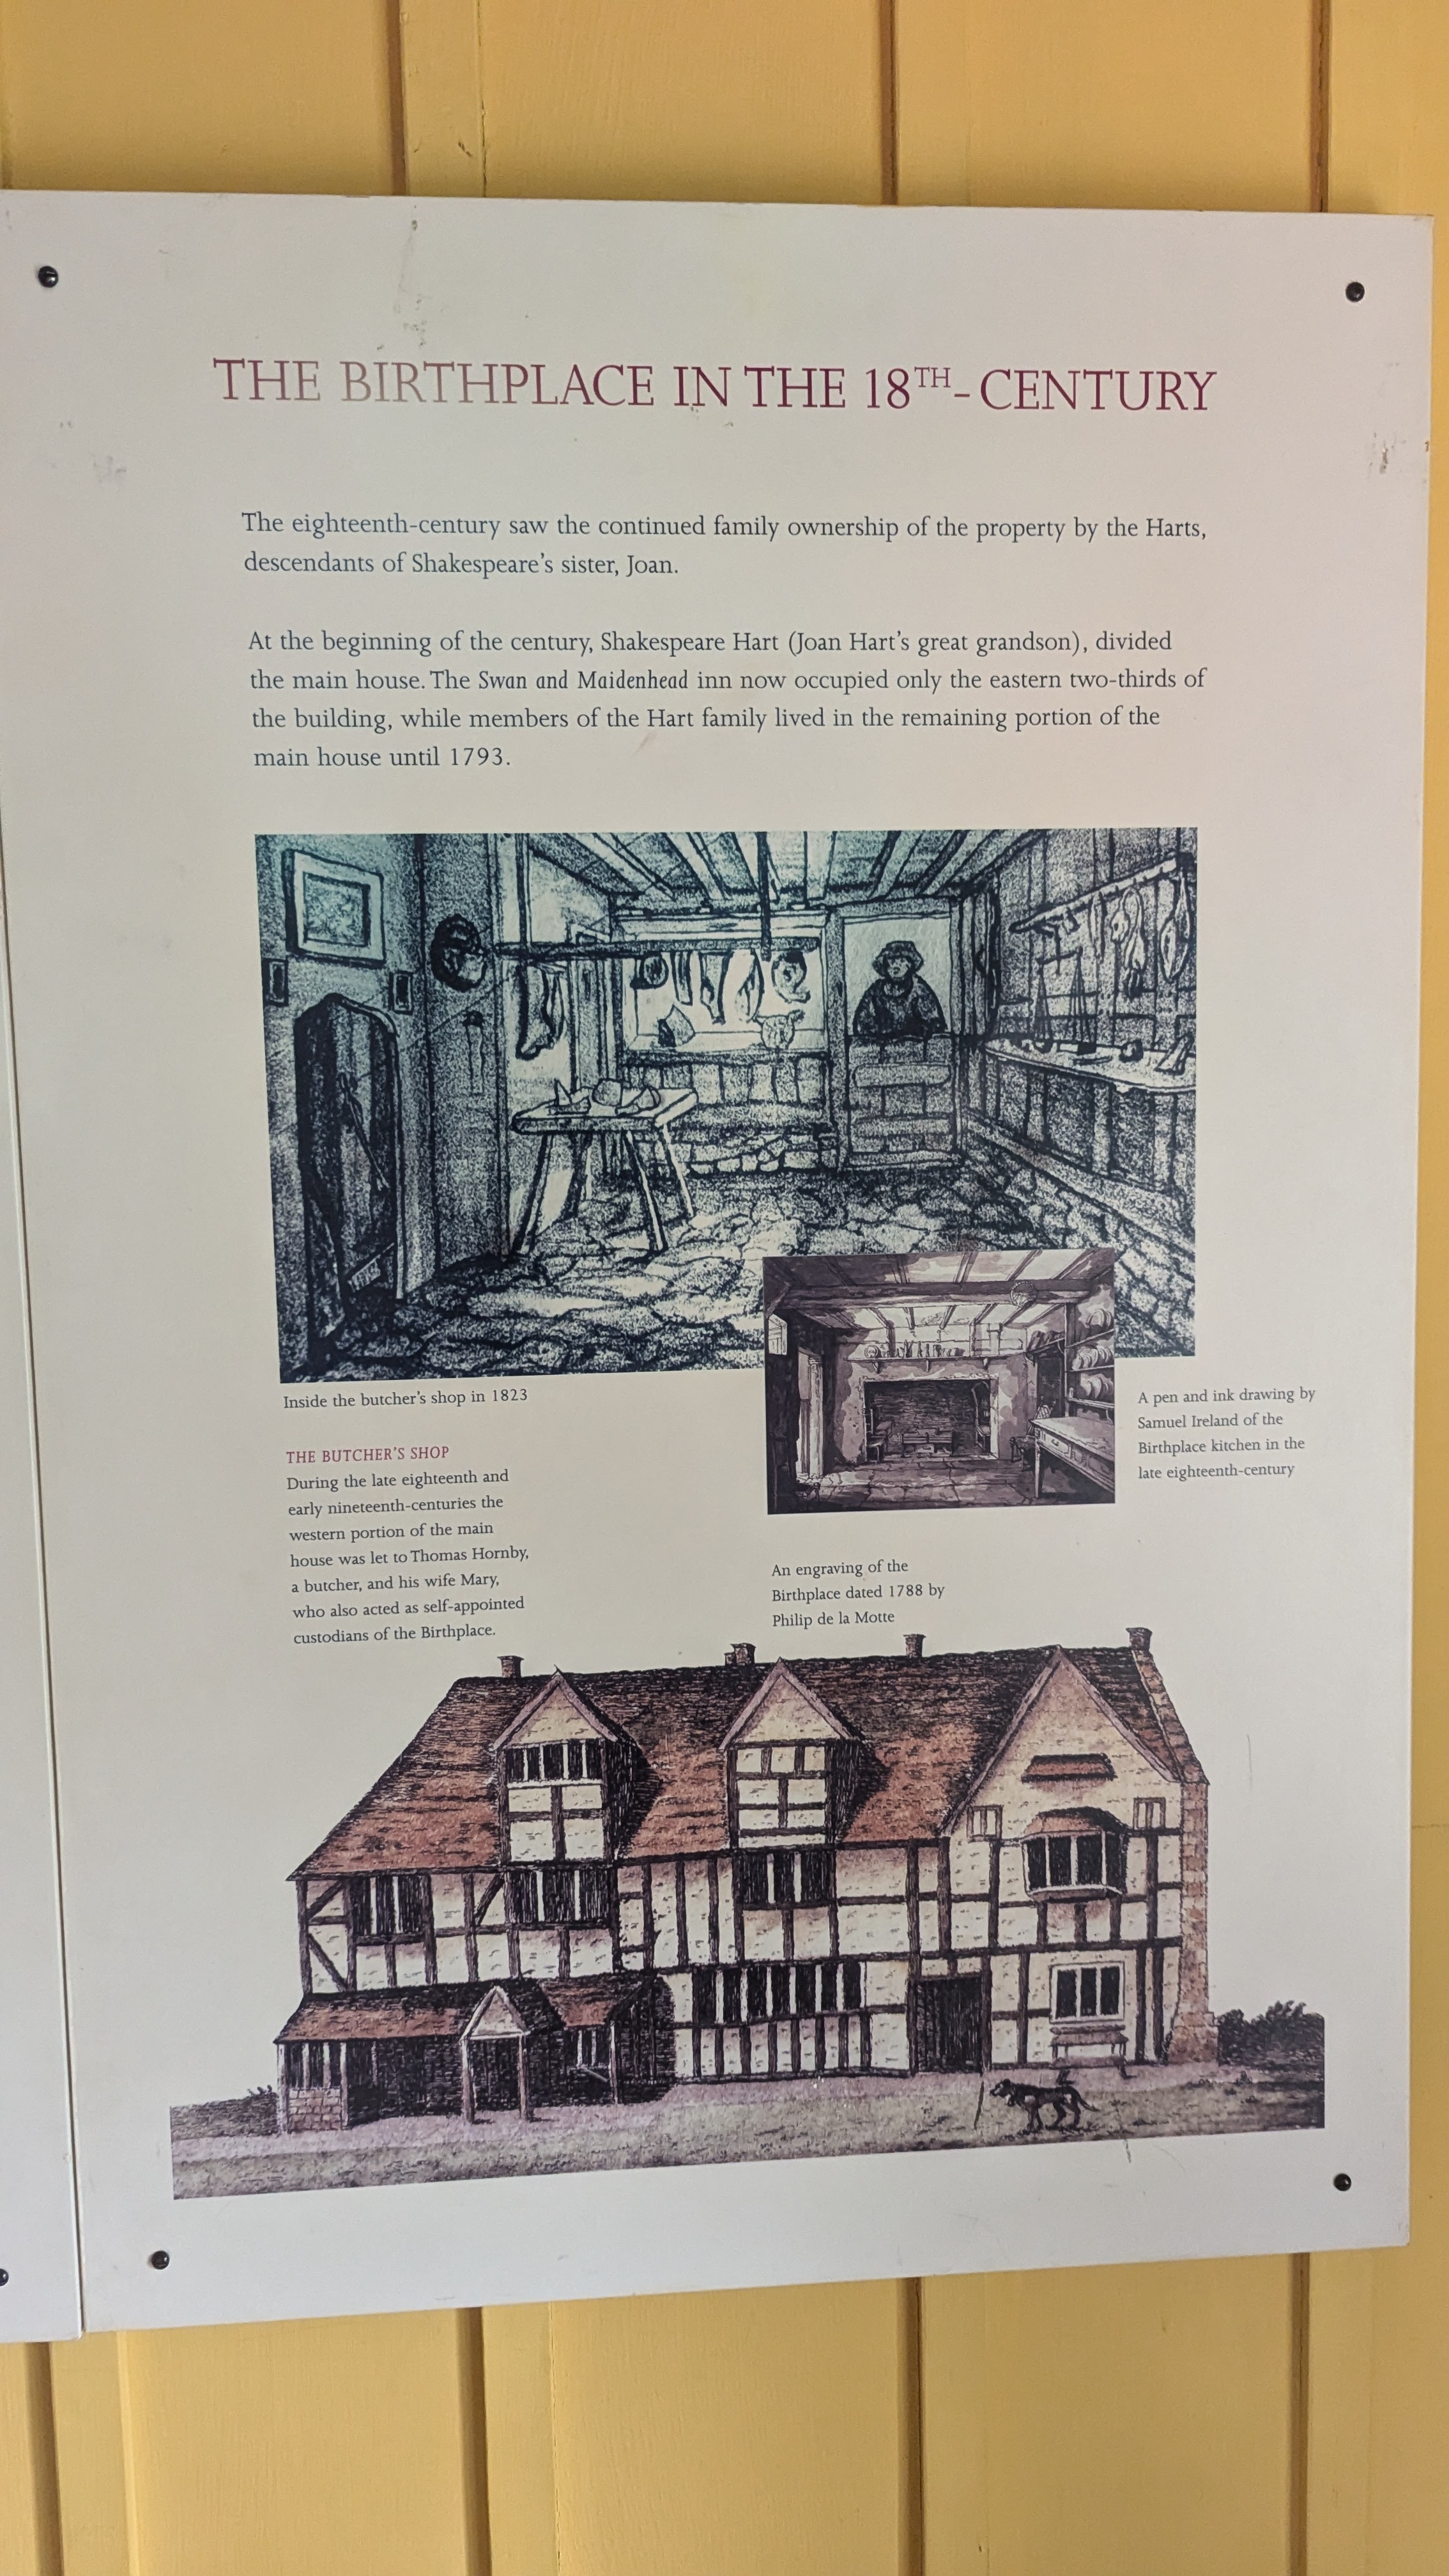 THE BIRTHPLACE IN THE 18TH-CENTURY
The eighteenth-century saw the continued family ownership of the property by the Harts,
descendants of Shakespeare's sister, Joan.
At the beginning of the century, Shakespeare Hart (Joan Hart's great grandson), divided
the main house. The Swan and Maidenhead inn now occupied only the eastern two-thirds of
the building, while members of the Hart family lived in the remaining portion of the
main house until 1793.
Inside the butcher's shop in 1823
A pen and ink drawing by
Samuel Ireland of the
Birthplace kitchen in the
late eighteenth-century
THE BUTCHER'S SHOP
During the late eighteenth and
early nineteenth-centuries the
western portion of the main
house was let to Thomas Hornby,
a butcher, and his wife Mary,
who also acted as self-appointed
custodians of the Birthplace.
An engraving of the
Birthplace dated 1788 by
Philip de la Motte